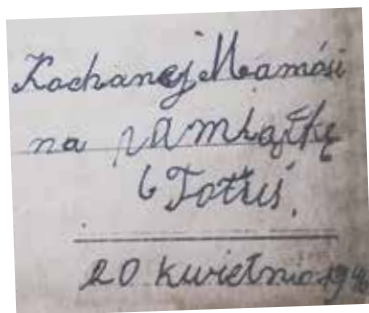 Kochanej Mamósi
na pamiątkę
20 kwietnia 194